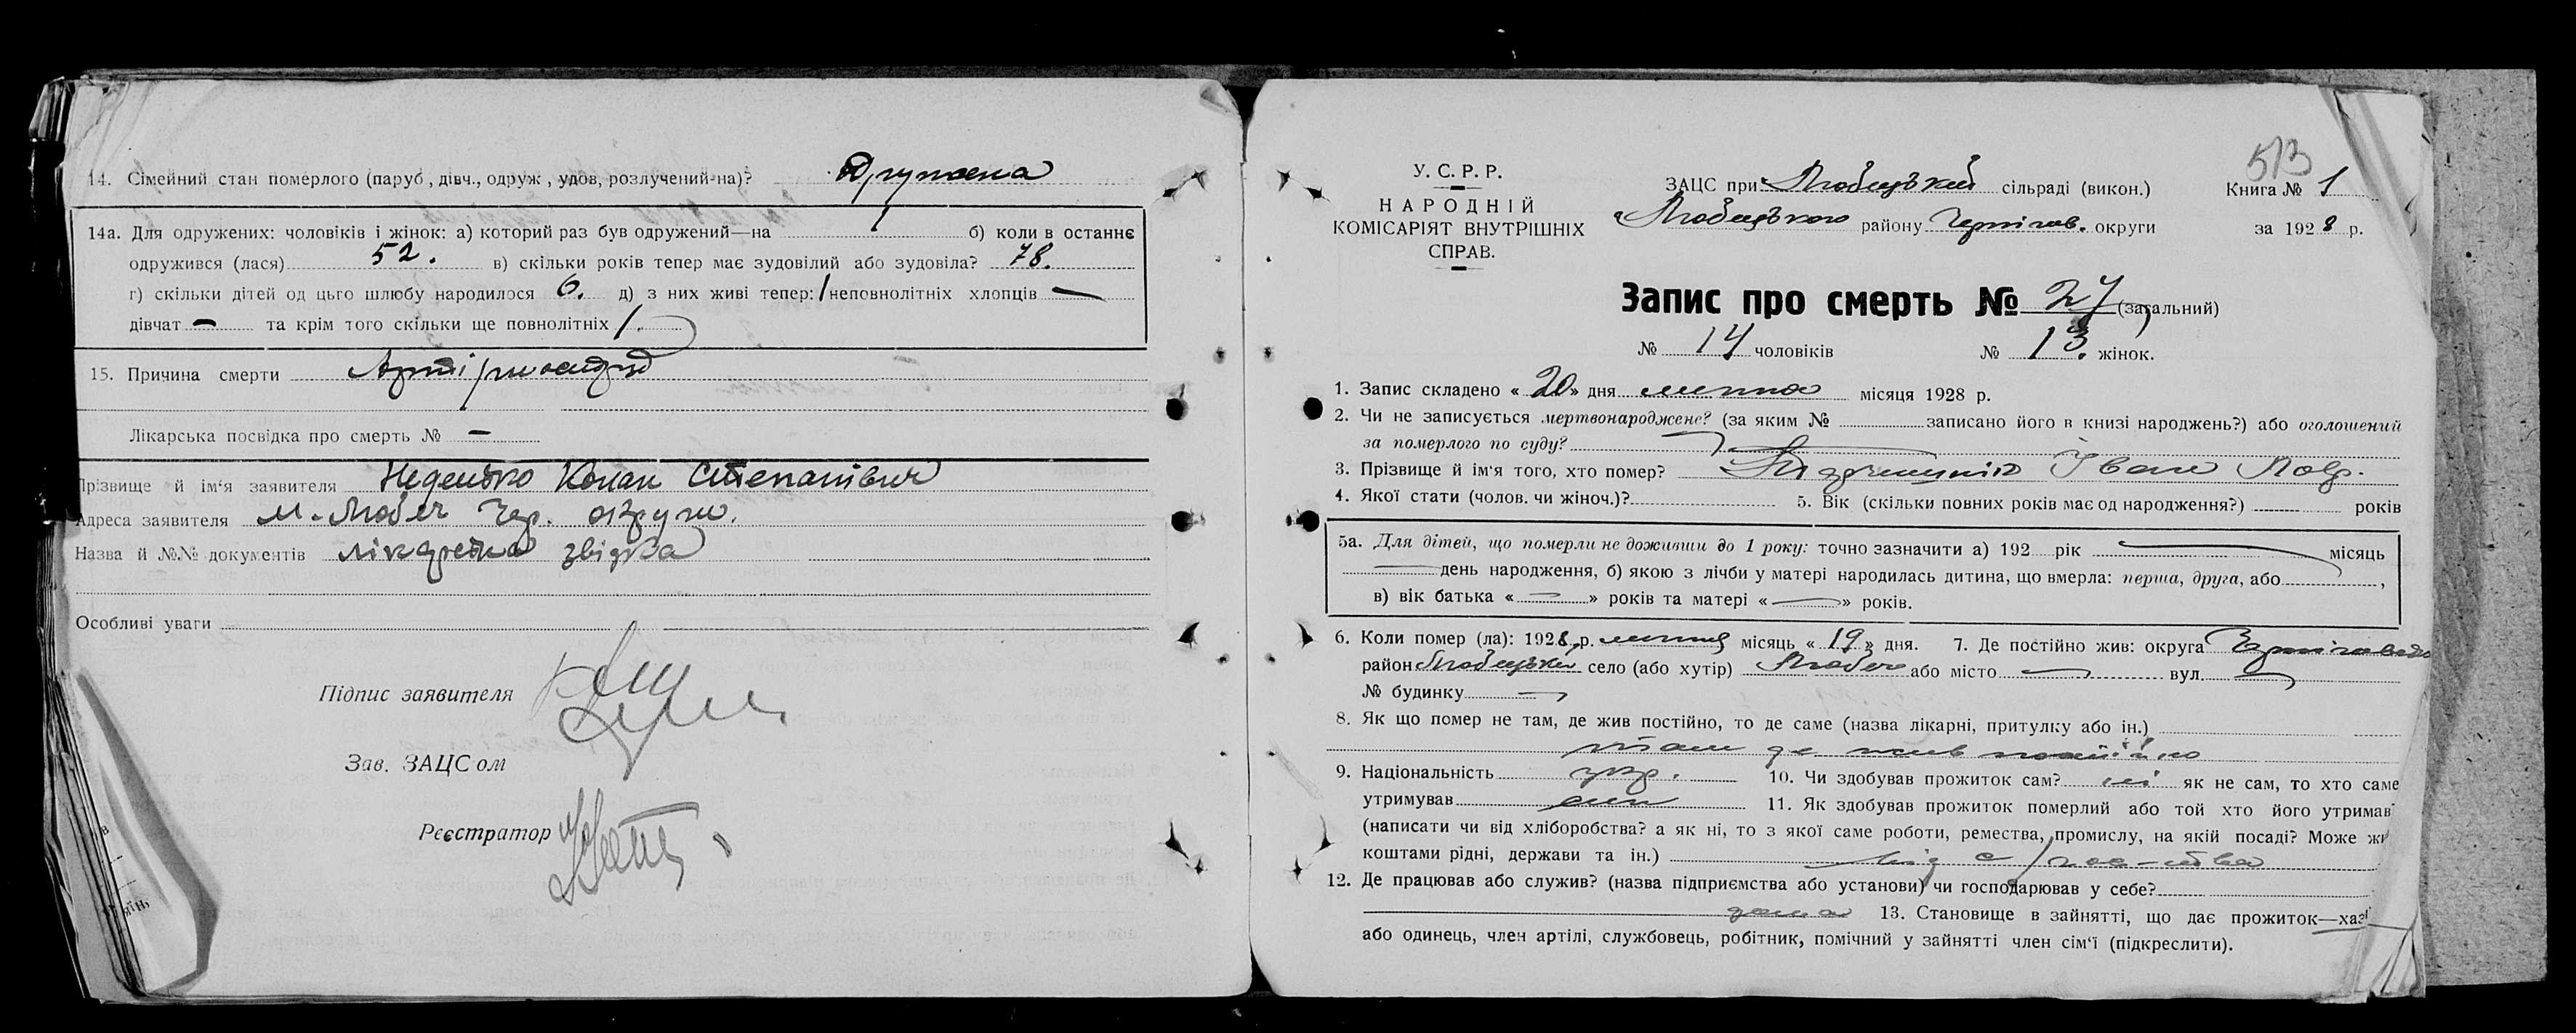 14. Сімейний стан померлого (паруб, дівч., одруж, удов, розлучений-на)? Дружена
14а. Для одружених: чоловіків і жінок: а) которий раз був одружений—на 1 б) коли в останнє
одружився (лася) 52. в) скільки років тепер має зудовілий або зудовіла? 78.
г) скільки дітей од цього шлюбу народилося 6. д) з них живі тепер: неповнолітніх хлопців —
дівчат — та крім того скільки ще повнолітніх 1.
15. Причина смерти
Лікарська посвідка про смерть № —
Прізвище й ім'я заявителя Конан Степанівич
Адреса заявителя м. Любеч Чер. округи.
Назва й №№ документів лікарська звідка
Особливі уваги
Підпис заявителя
Зав. ЗАЦСом
Реєстратор
513
У. С. Р. Р.
НАРОДНІЙ
КОМІСАРІЯТ ВНУТРІШНІХ
СПРАВ.
ЗАЦС при Любецькій сільраді (викон.) Книга № 1
Любецького району Чернігов. округи за 1928 р.
Запис про смерть № 27 (загальний)
№ 14 чоловіків № 13. жінок.
1. Запис складено « 20 » дня липня місяця 1928 р.
2. Чи не записується мертвонароджене? (за яким № записано його в книзі народжень?) або оголошений
за померлого по суду?
3. Прізвище й ім'я того, хто помер? Іван Лавр.
4. Якої стати (чолов. чи жіноч.)? 5. Вік (скільки повних років має од народження?) років
5а. Для дітей, що померли не доживши до 1 року: точно зазначити а) 192 рік — місяць
— день народження, б) якою з лічби у матері народилась дитина, що вмерла: перша, друга, або ,
в) вік батька « — » років та матері « — » років.
6. Коли помер (ла): 1928 р. липня місяць « 19 » дня. 7. Де постійно жив: округа
район Любецький село (або хутір) Любеч або місто — вул. —
№ будинку —
8. Як що помер не там, де жив постійно, то де саме (назва лікарні, притулку або ін.)
там де жив постійно
9. Національність укр. 10. Чи здобував прожиток сам? ні як не сам, то хто саме
утримував син 11. Як здобував прожиток померлий або той хто його утримав
(написати чи від хліборобства? а як ні, то з якої саме роботи, ремества, промислу, на якій посаді? Може жи
коштами рідні, держави та ін.) від с/гос-тва
12. Де працював або служив? (назва підприємства або установи) чи господарював у себе?
дома 13. Становище в зайнятті, що дає прожиток—хаз
або одинець, член артілі, службовець, робітник, помічний у зайнятті член сім'ї (підкреслити).